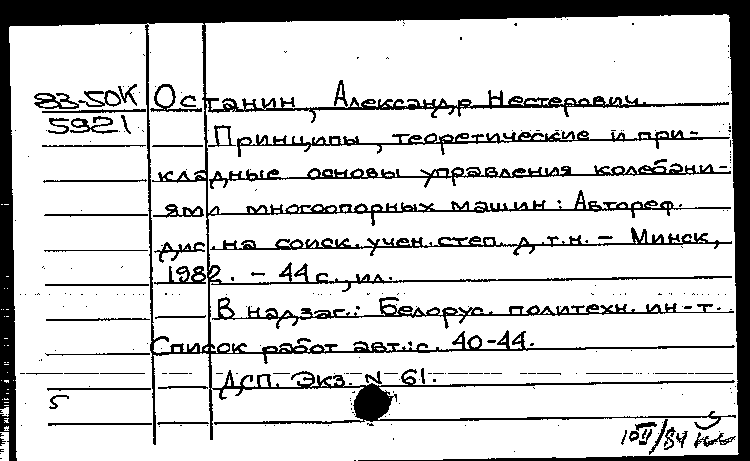 83-50К Останин, Александр Нестерович.
5921
Принципы, теоретические и при-
кладные основы управления колебани-
ями многоопорных машин: Автореф.
дис. на соиск. учен. степ. д.т.н. - Минск,
1982. - 44 с., ил.
В надзаг.: Белорус. политехн. ин-т.
Список работ авт.: с. 40-44.
ДСП. Экз. N 61.
5